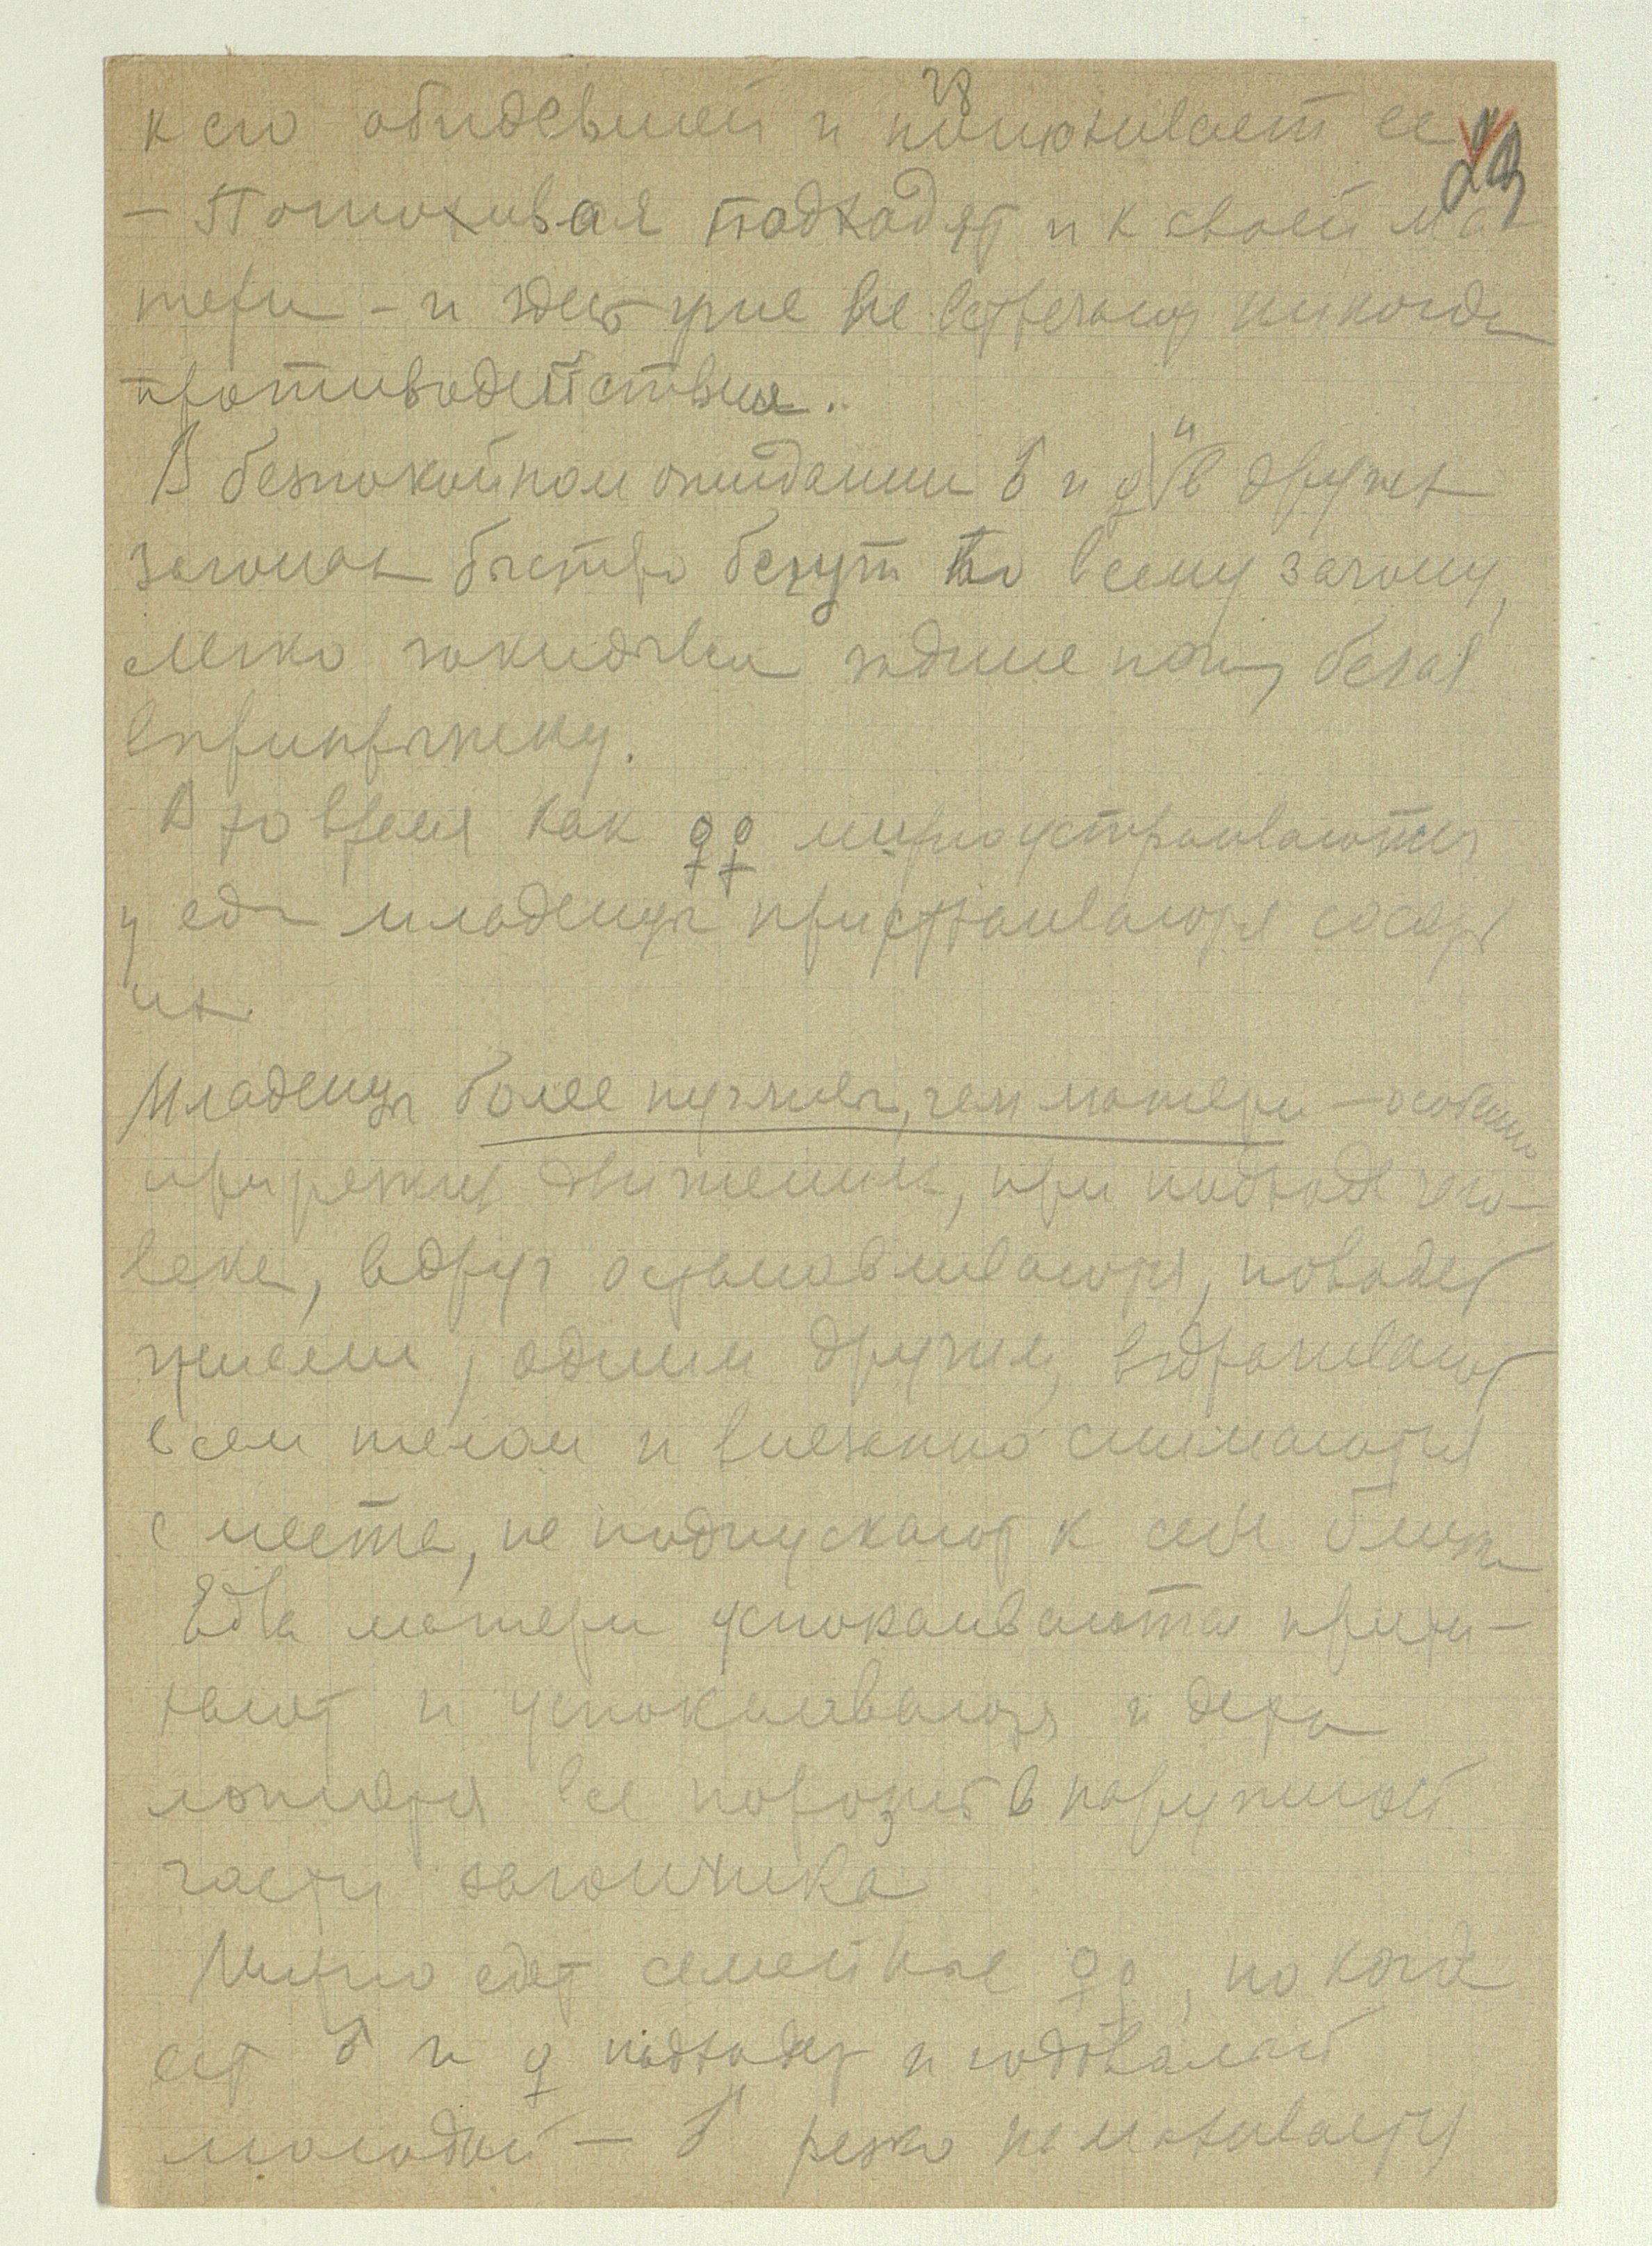 28
к его обидевшей и понюхивает ее
29
— Понюхивая подходят и к своей ма-
тери - и здесь уже не встречают никогда
противодействия.
В безпокойном ожидании ♂ и ♀ и в других
загонах быстро бегут по всему загону,
легко закидывая задние ноги, бегая
вприпрыжку.
В то время как ♀♀ мирно устраиваются
у еды младенцы пристраиваются сосать
их.
Младенцы более пугливы, чем матери — особенно
при резких движениях, при подходе чело-
века, вдруг останавливаются, поводят
ушами, одним другим, вздрагивают
всем телом и внезапно снимаются
с места, не подпускают к себе близко
Едва матери успокаиваются прити-
хают и успокаиваются и дети
ложатся все порознь в наружной
части загончика
Мирно едят семейные ♀♀, но когда
ест ♂ и ♀ подходят и годовалый
молодой — ♂ резко намахивается